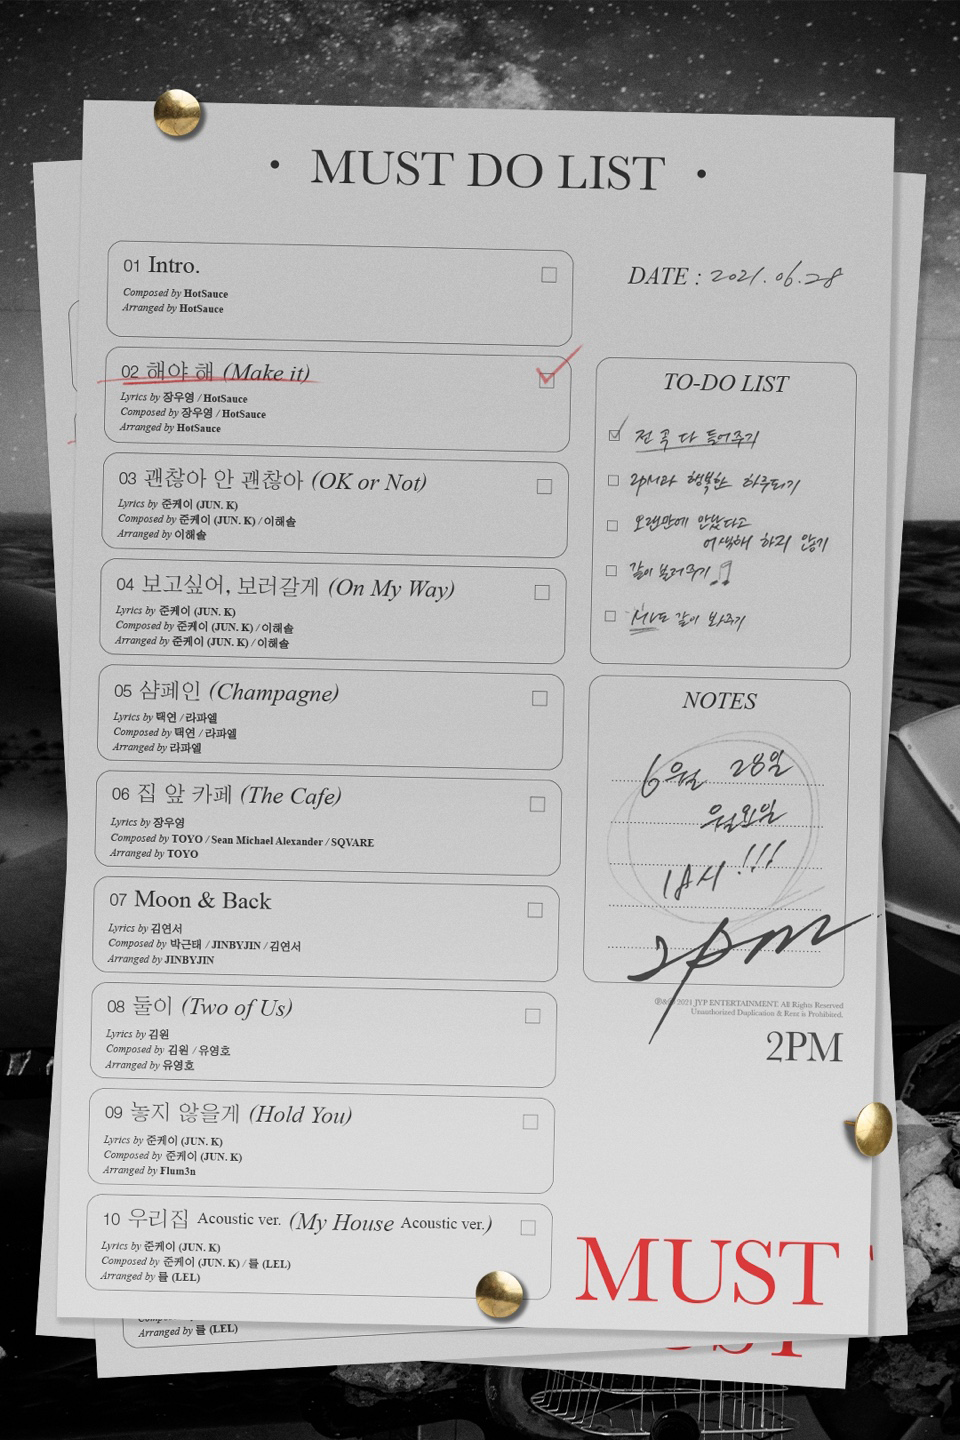 • MUST DO LIST •
01 Intro.
Composed by HotSauce
Arranged by HotSauce
02 해야 해 (Make it)
Lyrics by 장우영 / HotSauce
Composed by 장우영 / HotSauce
Arranged by HotSauce
03 괜찮아 안 괜찮아 (OK or Not)
Lyrics by 준케이 (JUN. K)
Composed by 준케이 (JUN. K) / 이해솔
Arranged by 이해솔
04 보고싶어, 보러갈게 (On My Way)
Lyrics by 준케이 (JUN. K)
Composed by 준케이 (JUN. K) / 이해솔
Arranged by 준케이 (JUN. K) / 이해솔
05 샴페인 (Champagne)
Lyrics by 택연 / 라파엘
Composed by 택연 / 라파엘
Arranged by 라파엘
06 집 앞 카페 (The Cafe)
Lyrics by 장우영
Composed by TOYO / Sean Michael Alexander / SQVARE
Arranged by TOYO
07 Moon & Back
Lyrics by 김연서
Composed by 박근태 / JINBYJIN / 김연서
Arranged by JINBYJIN
08 둘이 (Two of Us)
Lyrics by 김원
Composed by 김원 / 유영호
Arranged by 유영호
09 놓지 않을게 (Hold You)
Lyrics by 준케이 (JUN. K)
Composed by 준케이 (JUN. K)
Arranged by Flum3n
10 우리집 Acoustic ver. (My House Acoustic ver.)
Lyrics by 준케이 (JUN. K)
Composed by 준케이 (JUN. K) / 를 (LEL)
Arranged by 를 (LEL)
DATE : 2021.06.28
TO-DO LIST
전 곡 다 들어주기
2PM과 행복한 하루되기
오랜만에 만났다고
어색해 하지 않기
같이 불러주기
MV도 같이 봐주기
NOTES
6월 28일
월요일
6시 !!!
2pm
Ⓟ&© 2021 JYP ENTERTAINMENT. All Rights Reserved
Unauthorized Duplication & Rent is Prohibited.
2PM
MUST
Arranged by 를 (LEL)